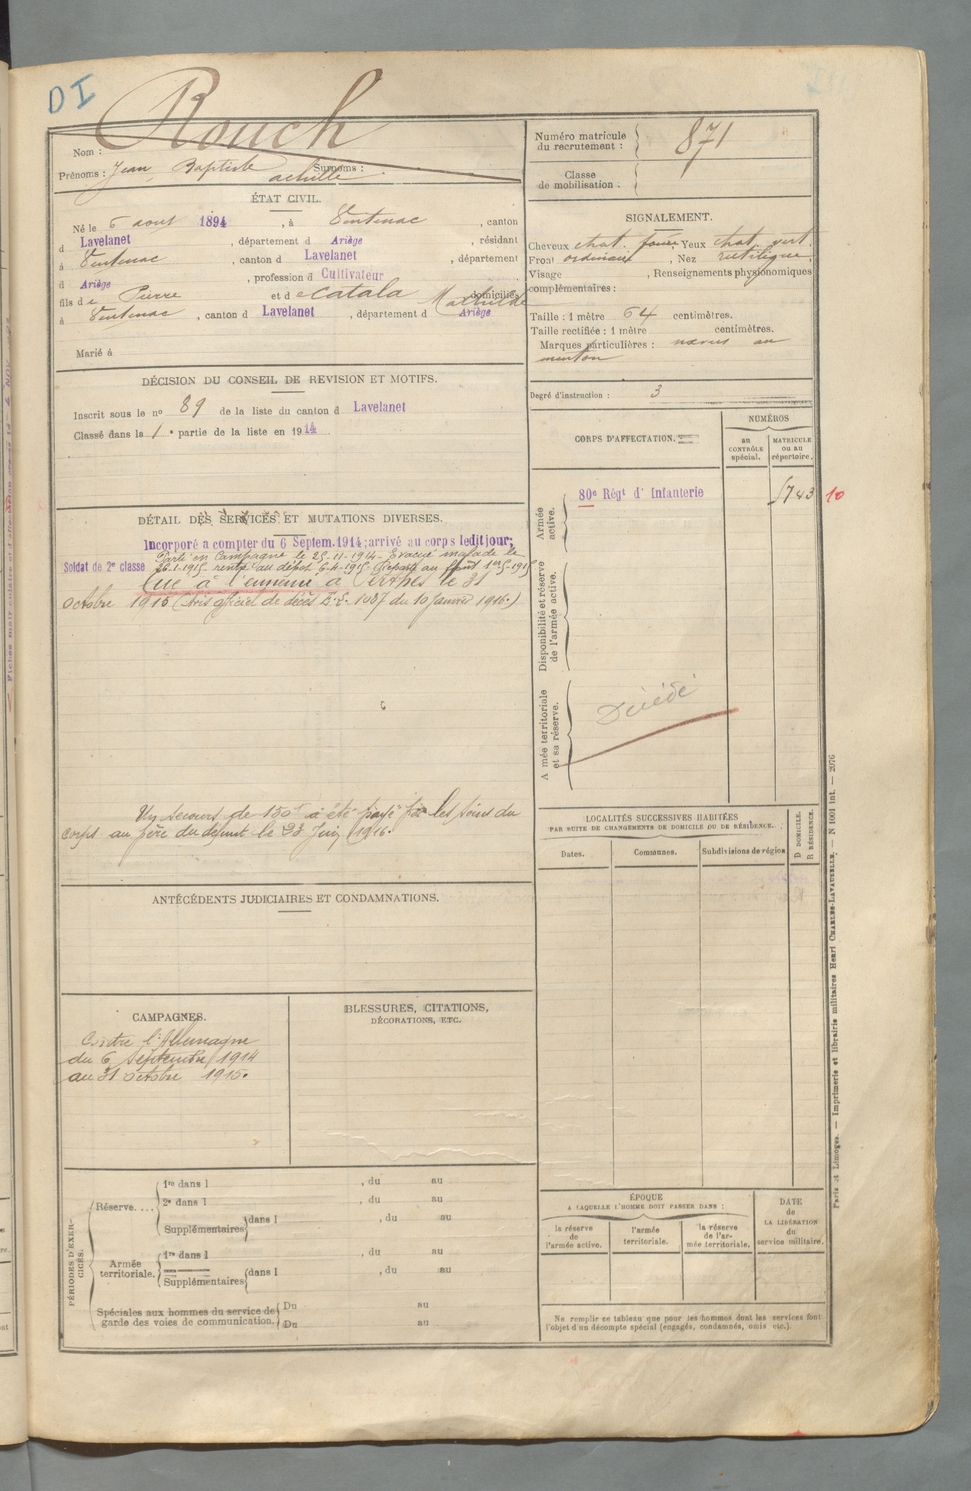 DI
Rouch
Nom :
Prénoms : Jean, Baptiste Surnoms :
achille
ÉTAT CIVIL.
Né le 6 aout 1894, à Ventenac, canton
d Lavelanet, département d Ariège, résidant
à Ventenac, canton d Lavelanet, département
d Ariège, profession d Cultivateur
fils de Pierre et de Catala Mathilde domiciliés
à Ventenac, canton d Lavelanet, département d Ariège
Marié à
DÉCISION DU CONSEIL DE REVISION ET MOTIFS.
Inscrit sous le nº 89 de la liste du canton d Lavelanet
Classé dans la 1e partie de la liste en 1914
DÉTAIL DES SERVICES ET MUTATIONS DIVERSES.
Incorporé a compter du 6 Septem. 1914; arrivé au corps ledit jour;
Soldat de 2e classe
Parti en Campagne le 25-11-1914- Evacué malade le
26-1-1915 rentré au dépôt 6-4-1915- Reparti au front 1er-5-1915
Tué à l'ennemi à Perthes le 31
octobre 1915 (Avis officiel de décès 1087 du 10 Janvier 1916.)
Un secours de 150f a été payé par les soins du
corps au père du défunt le 23 Juin 1916.
ANTÉCÉDENTS JUDICIAIRES ET CONDAMNATIONS.
CAMPAGNES.
Contre l'Allemagne
du 6 Septembre 1914
au 31 octobre 1915.
BLESSURES, CITATIONS,
DÉCORATIONS, ETC.
PÉRIODES D'EXERCICES.
Réserve....
1re dans l , du au
2e dans l , du au
Supplémentaires dans l , du au
Armée
territoriale.
1re dans l , du au
Supplémentaires dans l , du au
Spéciales aux hommes du service de
garde des voies de communication.
Du au
Du au
Numéro matricule
du recrutement :
871
Classe
de mobilisation.
SIGNALEMENT.
Cheveux chat. foncé Yeux chat. vert
Front ordinaire, Nez rectiligne
Visage , Renseignements physionomiques
complémentaires :
Taille : 1 mètre 64 centimètres.
Taille rectifiée : 1 mètre centimètres.
Marques particulières : nævus au
menton
Degré d'instruction : 3
CORPS D'AFFECTATION.
NUMÉROS
au
CONTRÔLE
spécial.
MATRICULE
ou au
répertoire.
Armée
active.
80e Régt d' Infanterie
5743
10
Disponibilité et réserve
de l'armée active.
A mée territoriale
et sa réserve.
Décédé
LOCALITÉS SUCCESSIVES HABITÉES
PAR SUITE DE CHANGEMENTS DE DOMICILE OU DE RÉSIDENCE.
Dates.
Communes.
Subdivisions de région
D DOMICILE.
R RÉSIDENCE.
ÉPOQUE
A LAQUELLE L'HOMME DOIT PASSER DANS :
la réserve
de
l'armée active.
l'armée
territoriale.
la réserve
de l'ar-
mée territoriale.
DATE
de
LA LIBÉRATION
du
service militaire.
Ne remplir ce tableau que pour les hommes dont les services font
l'objet d'un décompte spécial (engagés, condamnés, omis etc.).
Paris et Limoges. — Imprimerie et librairie militaires Henri CHARLES-LAVAUZELLE. — N 1001 int. — 2076